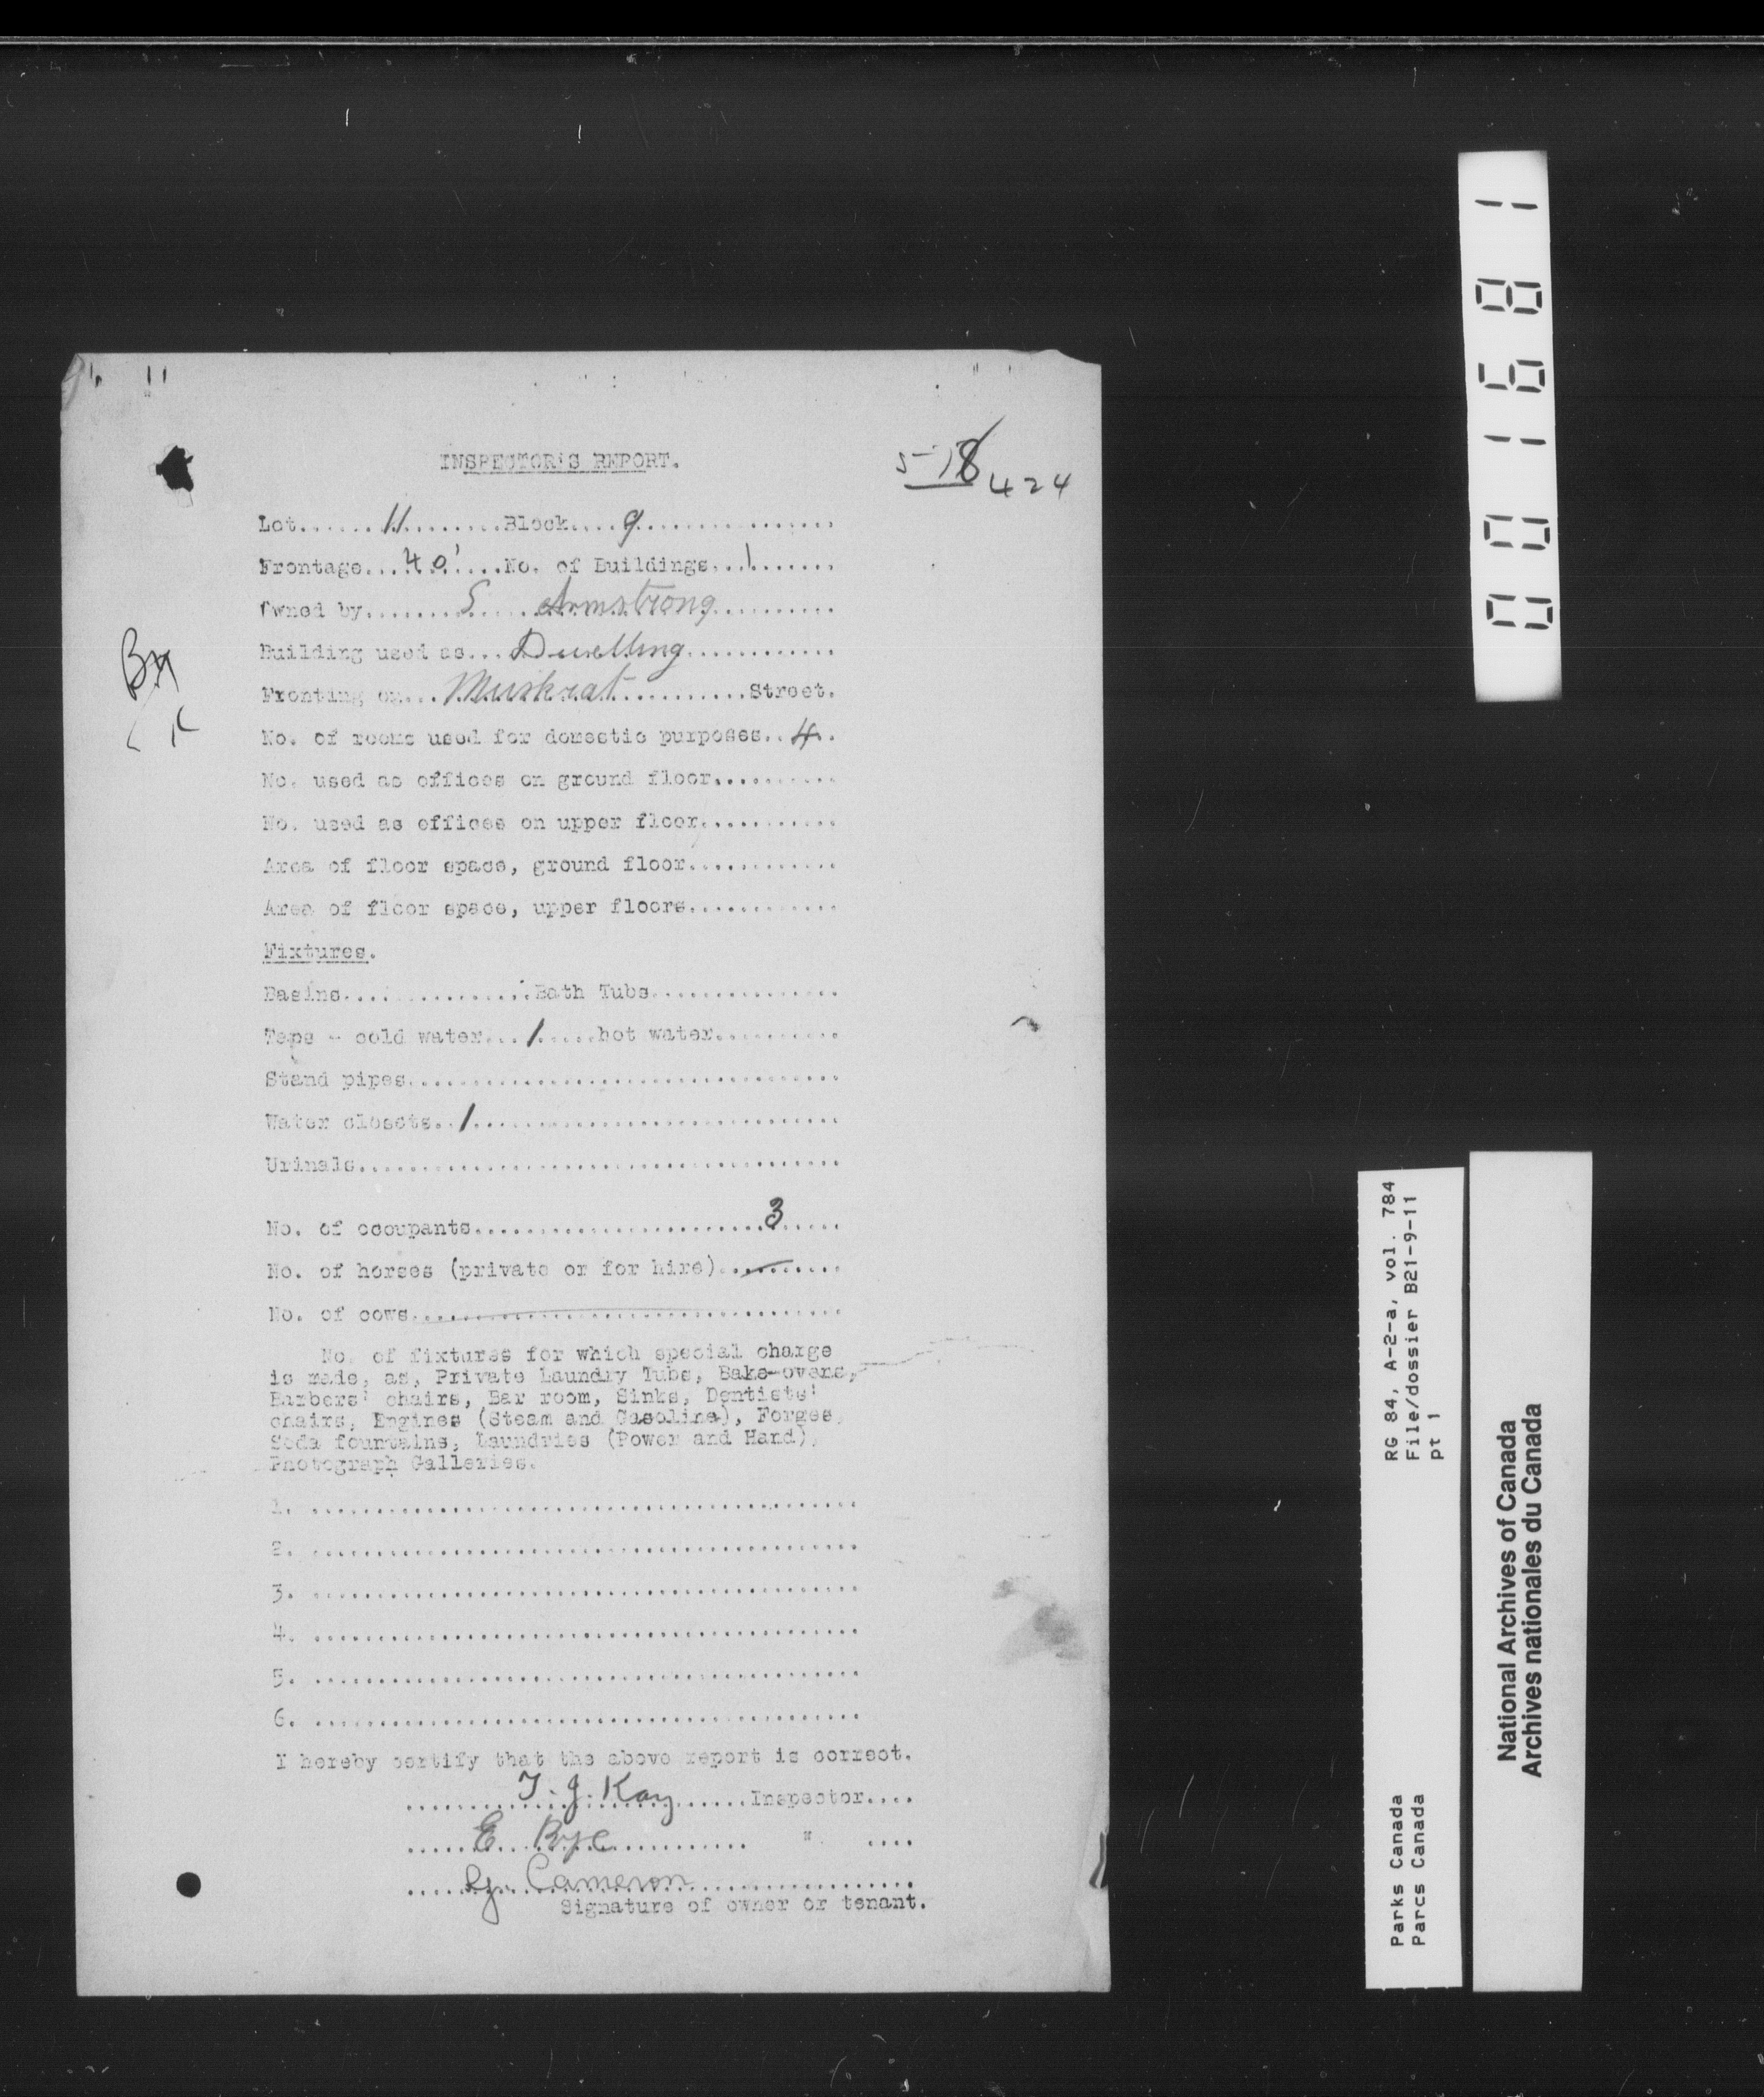 INSPECTOR'S REPORT.
518
424
Lot......11.........Block....9.................
Frontage...40'.....No. of Buildings...1.......
Owned by.........S.....Armstrong..........
Building used as...Dwelling............
Fronting on...Muskrat..........Street.
No. of rooms used for domestic purposes..4..
No. used as offices on ground floor...........
No. used as offices on upper floor............
Area of floor space, ground floor.............
Area of floor space, upper floors.............
Fixtures.
Basins................Bath Tubs................
Taps - cold water...1.....hot water..........
Stand pipes..................................
Water closets..1.............................
Urinals......................................
No. of occupants.......................3.....
No. of horses (private or for hire)..........
No. of cows..................................
No. of fixtures for which special charge
is made, as, Private Laundry Tubs, Bake-ovens,
Barbers' chairs, Bar room, Sinks, Dentists'
chairs, Engines (Steam and Gasoline), Forges,
Soda fountains, Laundries (Power and Hand),
Photograph Galleries.
1. ..........................................
2. ..........................................
3. ..........................................
4. ..........................................
5. ..........................................
6. ..........................................
I hereby certify that the above report is correct.
........T. J. Kay......Inspector....
.....E. Rye........... " ....
.....Cameron.................
Signature of owner or tenant.
001681
RG 84, A-2-a, vol. 784
File/dossier B21-9-11
pt 1
Parks Canada
Parcs Canada
National Archives of Canada
Archives nationales du Canada